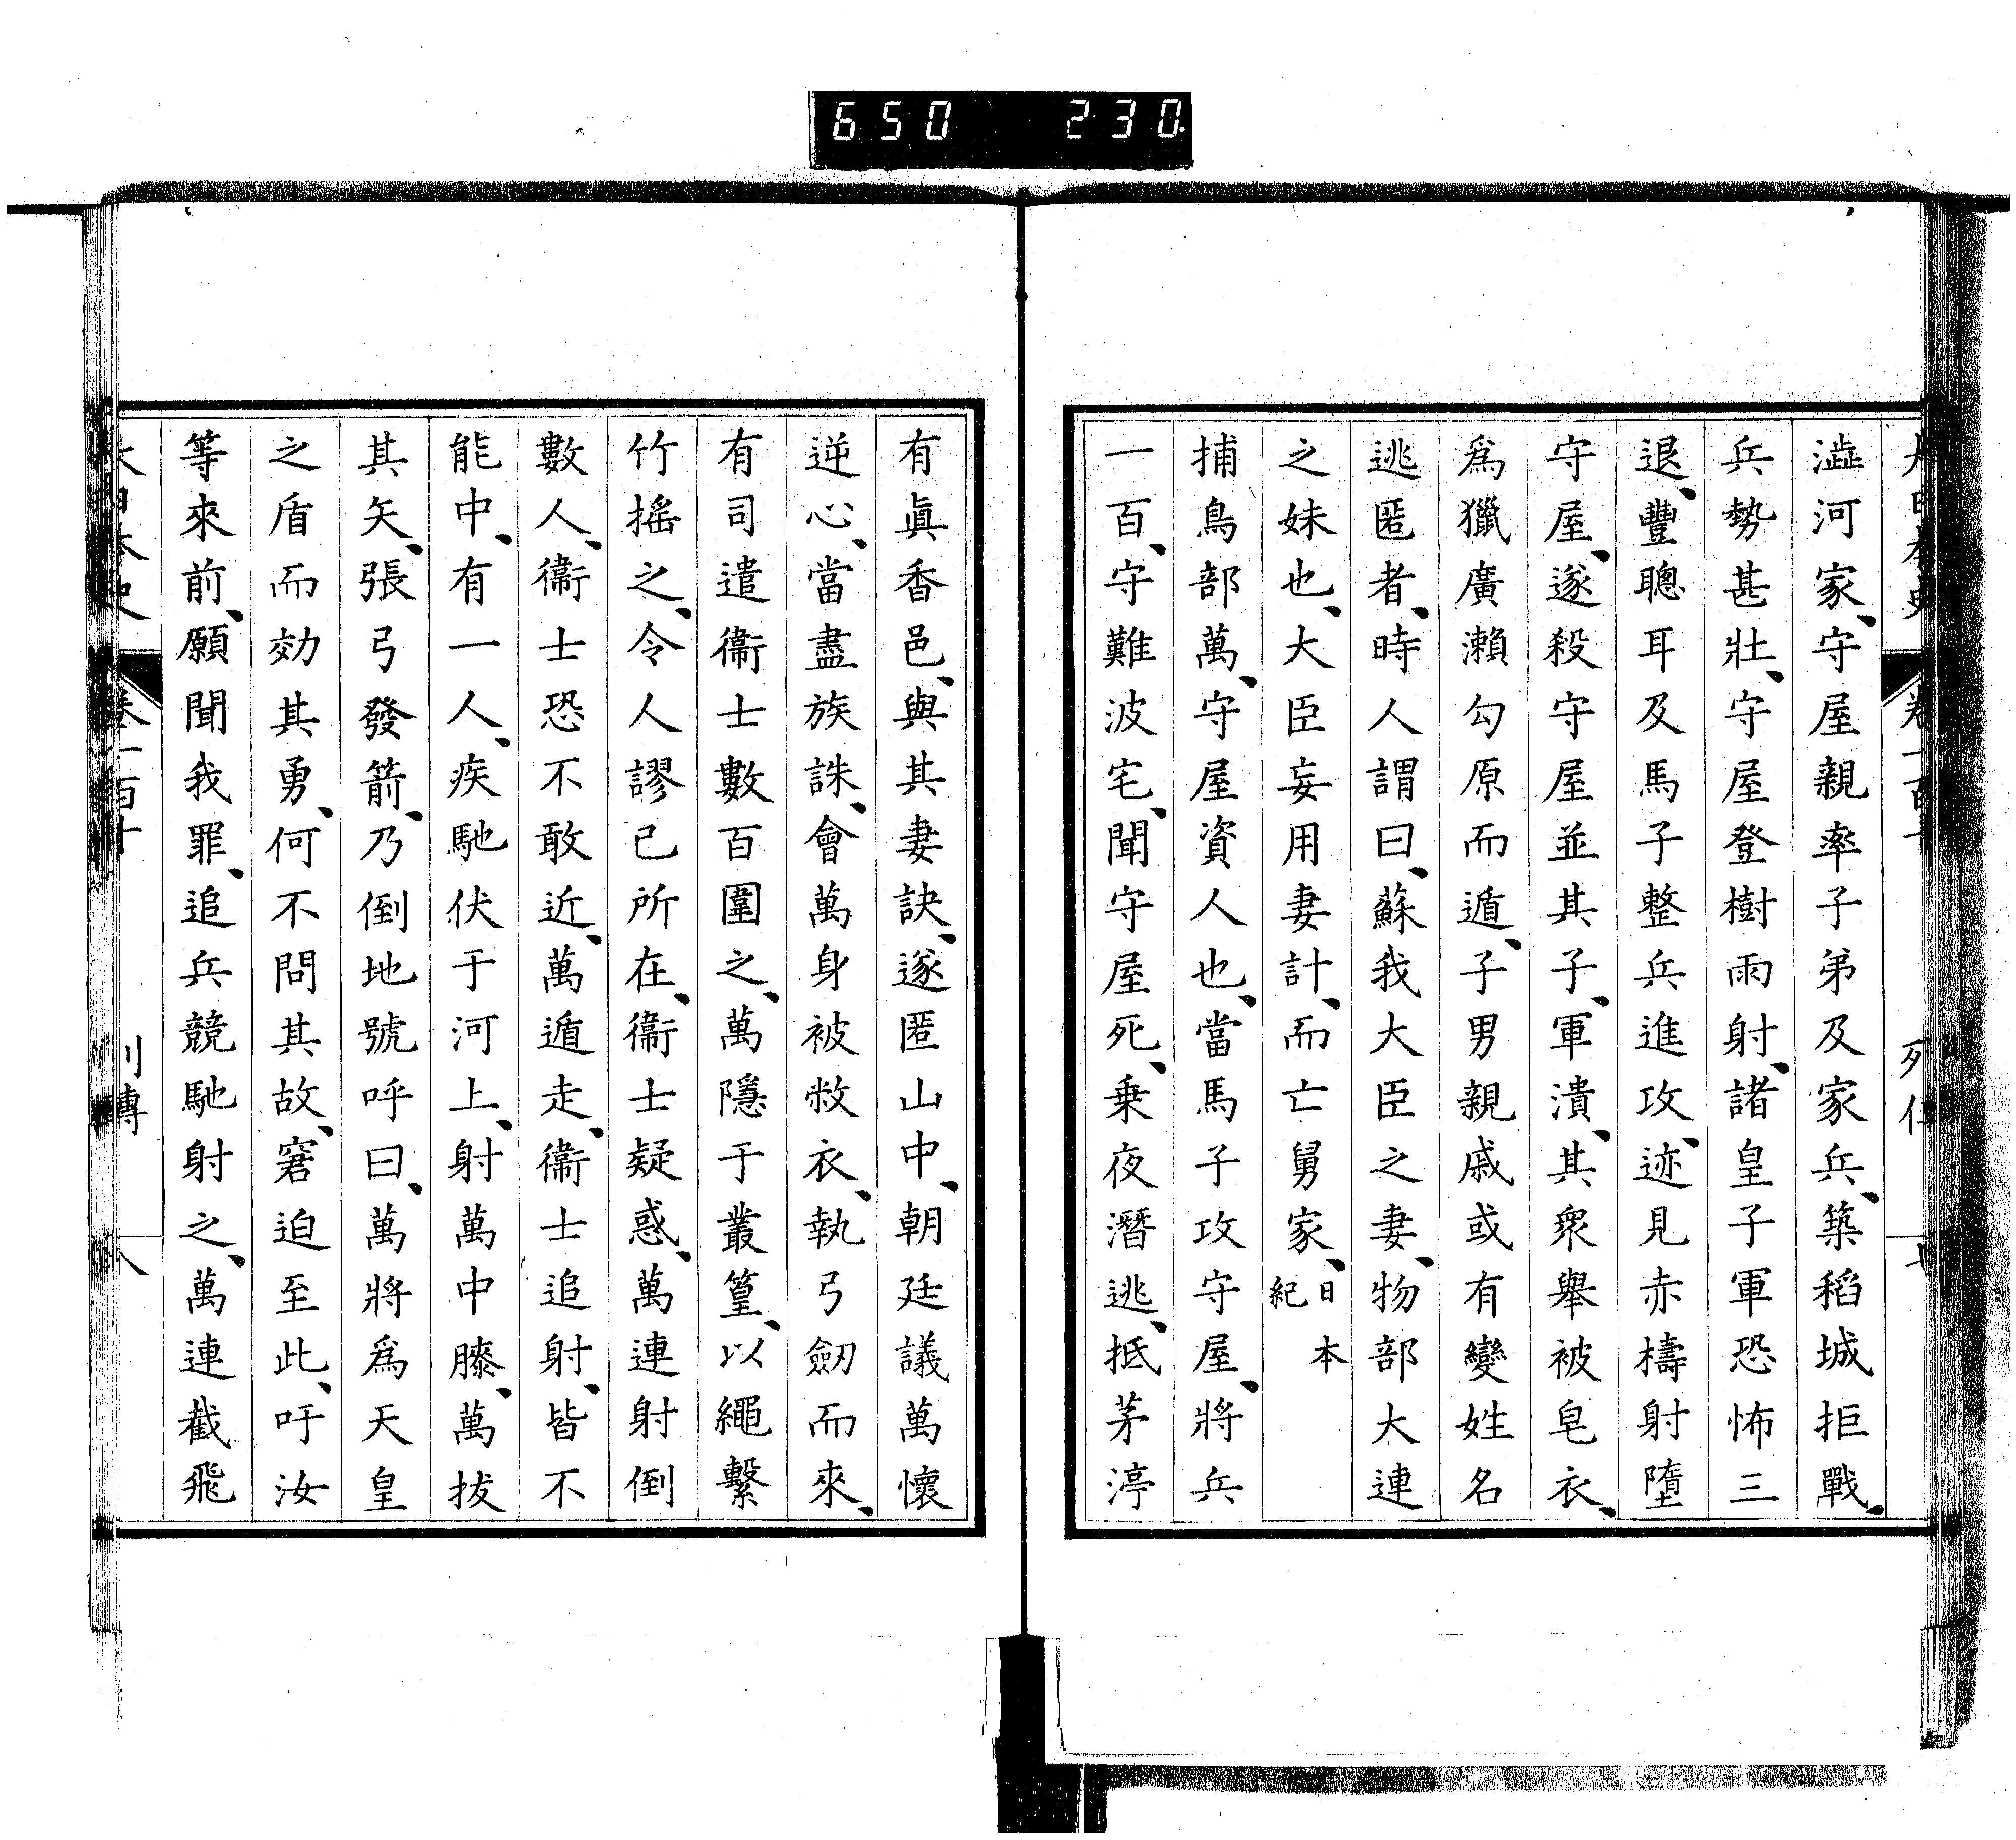 650 230
澁河家、守屋親率子弟及家兵、築稻城拒戰、
兵勢甚壯、守屋登樹雨射、諸皇子軍恐怖三
退、豐聰耳及馬子整兵進攻、迹見赤檮射墮
守屋、遂殺守屋並其子、軍潰、其衆擧被皂衣、
爲獵廣瀨勾原而遁、子男親戚或有變姓名
逃匿者、時人謂曰、蘇我大臣之妻、物部大連
之妹也、大臣妄用妻計、而亡舅家、日本紀
捕鳥部萬、守屋資人也、當馬子攻守屋、將兵
一百、守難波宅、聞守屋死、乗夜潛逃、抵茅渟
有眞香邑、與其妻訣、遂匿山中、朝廷議萬懷
逆心、當盡族誅、會萬身被敝衣、執弓劒而來、
有司遣衞士數百圍之、萬隱于叢篁、以繩繫
竹搖之、令人謬己所在、衞士疑惑、萬連射倒
數人、衞士恐不敢近、萬遁走、衞士追射、皆不
能中、有一人、疾馳伏于河上、射萬中膝、萬拔
其矢、張弓發箭、乃倒地號呼曰、萬將爲天皇
之盾而効其勇、何不問其故、窘迫至此、吁汝
等來前、願聞我罪、追兵競馳射之、萬連截飛
大日本史 卷一百十 列傳 八